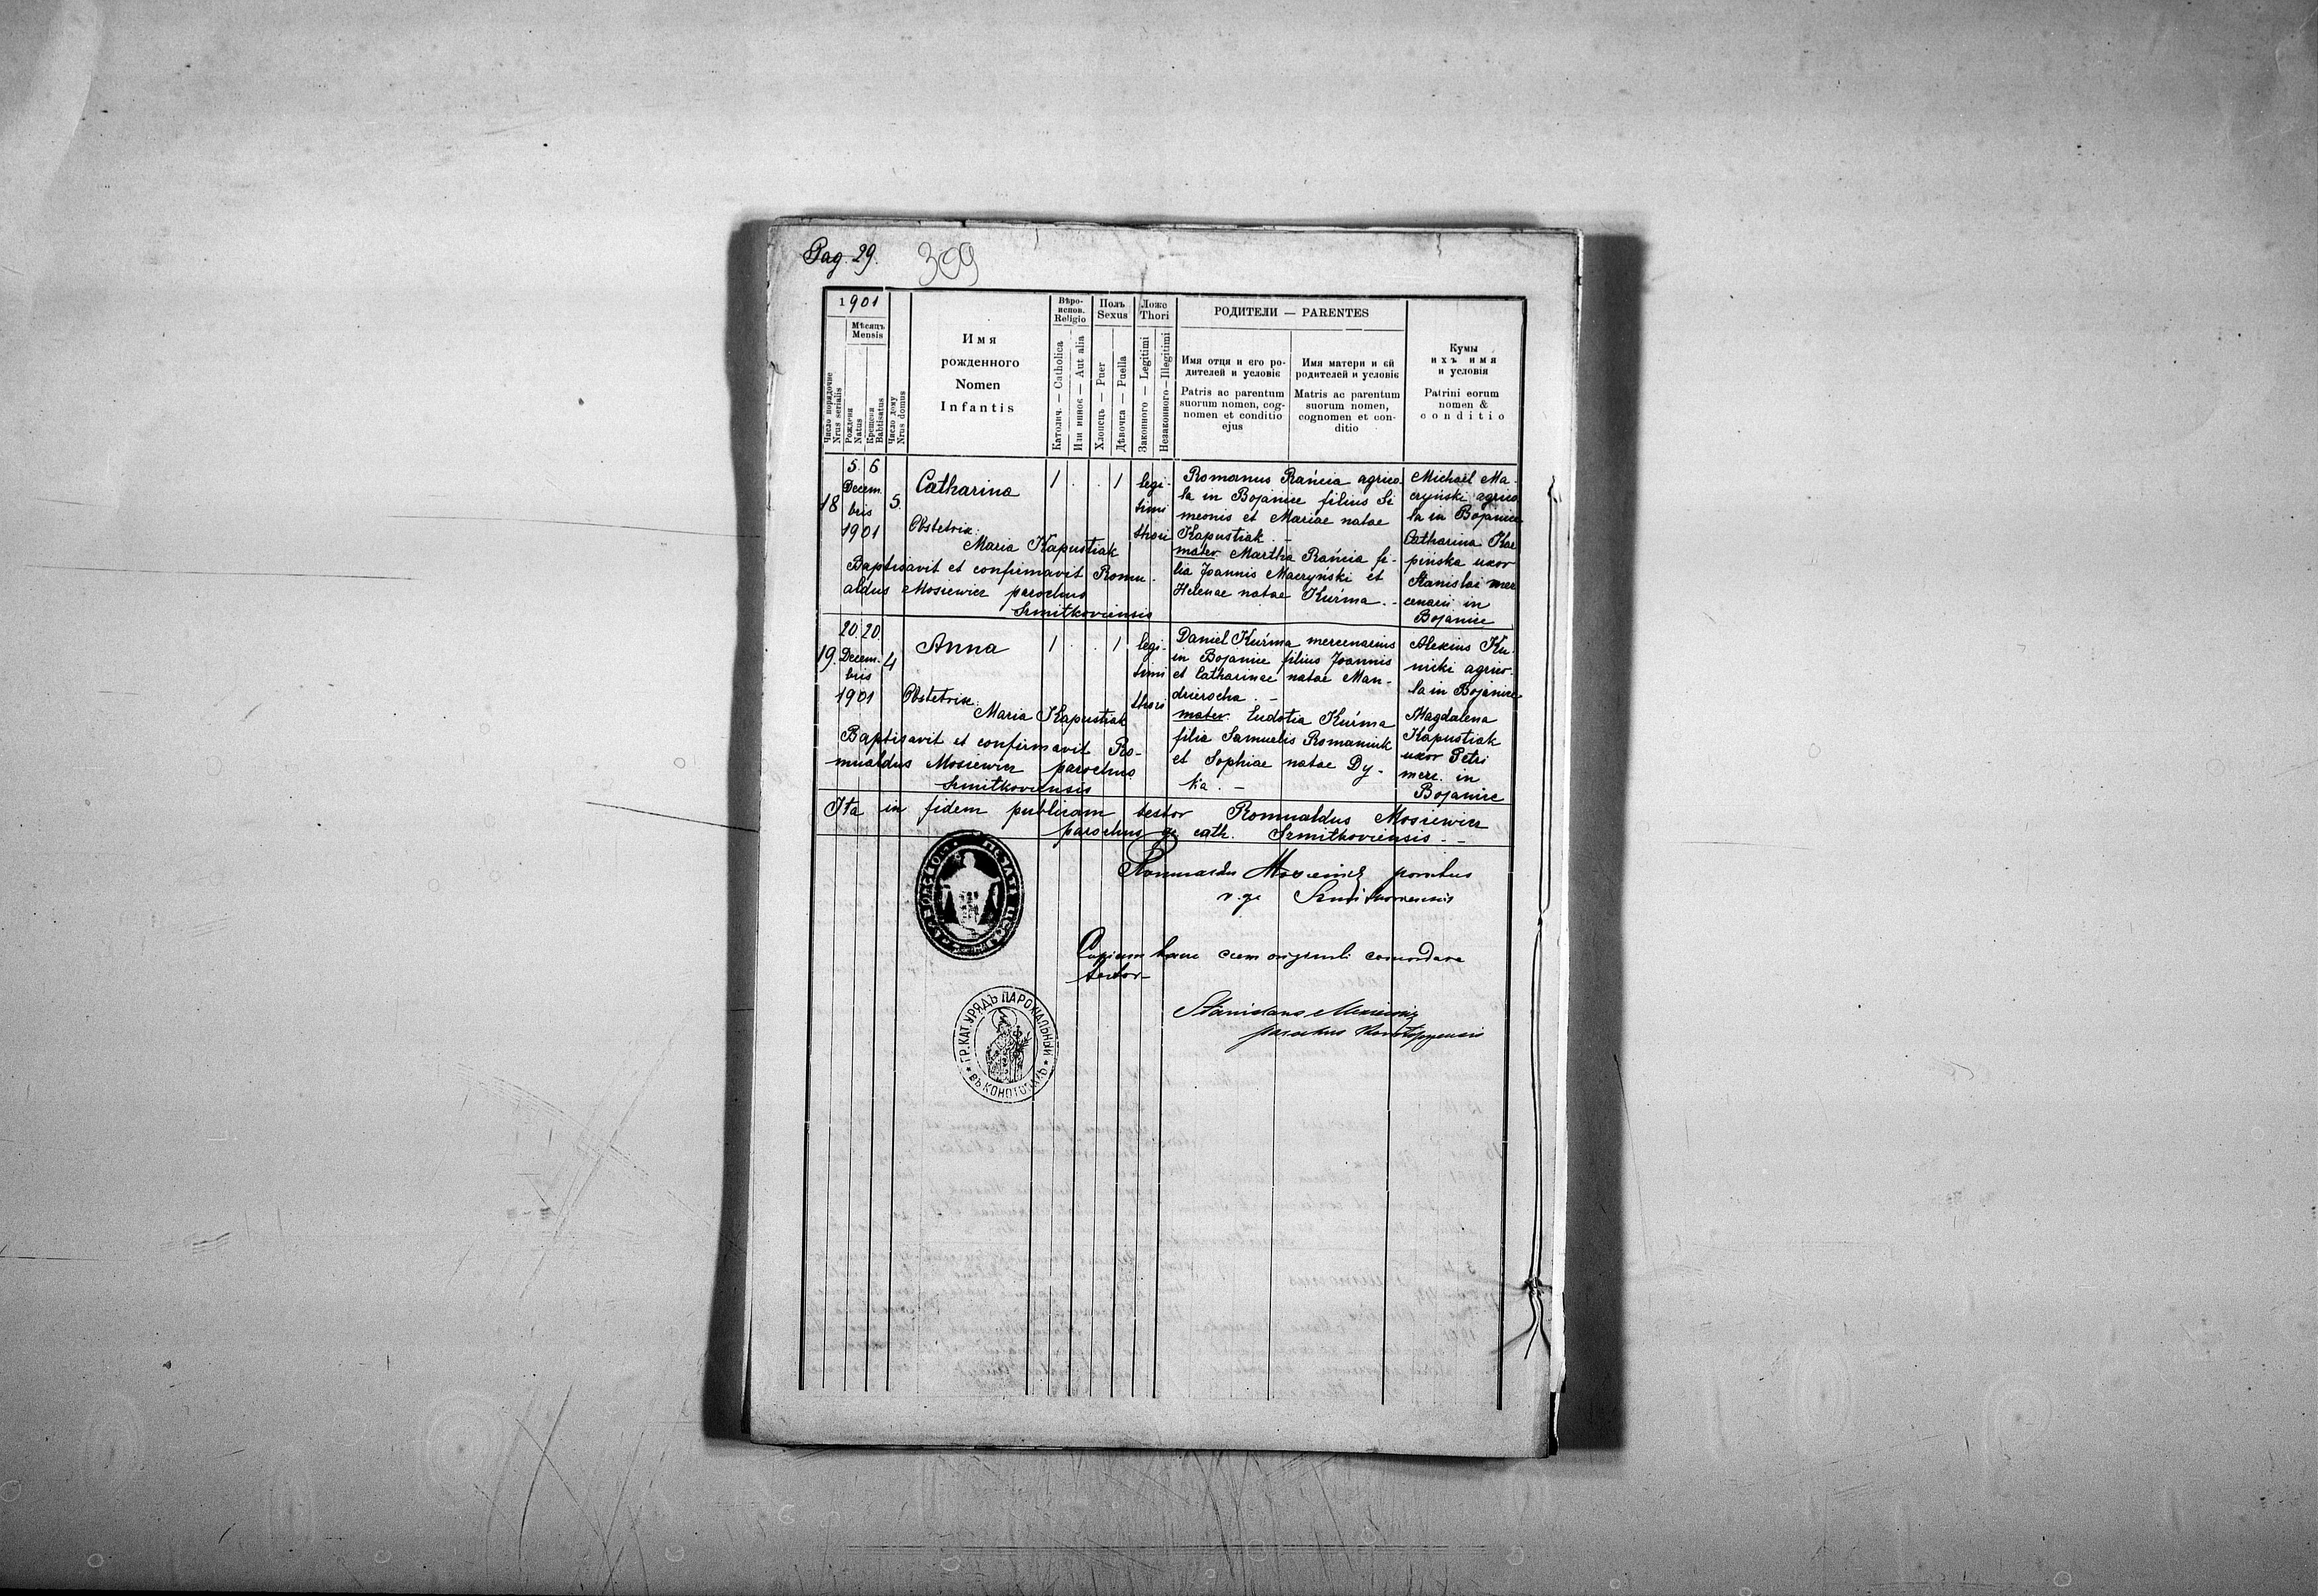 Pag. 29.
309
1901
Мѣсяць
Mensis
Число порядочне
Nrus serialis
Рожденя
Natus
Крещеня
Babtisatus
Число дому
Nrus domus
Имя
рожденного
Nomen
Infantis
Вѣро-
испов.
Religio
Католич. — Catholica
Или инное — Aut alia
Полъ
Sexus
Хлопець — Puer
Дѣвочка — Puella
Ложе
Thori
Законного — Legitimi
Незаконного — Illegitimi
РОДИТЕЛИ — PARENTES
Имя отця и єго ро-
дителей и условіє
Patris ac parentum
suorum nomen, cog-
nomen et conditio
ejus
Имя матери и єй
родителей и условіє
Matris ac parentum
suorum nomen,
cognomen et con-
ditio
Кумы
ихъ имя
и условія
Patrini eorum
nomen &
conditio
18
5. 6
Decem.
bris
1901
5.
Catharina
Obstetrix:
Maria Kapustiak
Baptisavit et confirmavit Romu-
aldus Mosiewicz parochus
Szmitkoviensis
1 . . 1
legi-
timi
thori
Romanus Rańcia agrico
la in Bojanice filius Si
meonis et Mariae natae
Kapustiak. —
mater Martha Rańcia fi-
lia Joannis Maczyński et
Helenae natae Kuźma. -
Michael Ma-
czyński agrico
la in Bojanice
Catharina Kar
pińska uxor
Stanislai mer
cenarii in
Bojanice
19.
20. 20.
Decem.
bris
1901
4
Anna
Obstetrix:
Maria Kapustiak
Baptisavit et confirmavit Ro-
mualdus Mosiewicz parochus
Szmitkoviensis
1 . . 1
legi-
timi
thori
Daniel Kuźma mercenarius
in Bojanice filius Joannis
et Catharinae natae Man-
dzierocha. —
mater. Eudotia Kuźma
filia Samuelis Romaniuk
et Sophiae natae Dy-
ka. —
Alexius Ku-
nicki agrico-
la in Bojanice
Magdalena
Kapustiak
uxor Petri
merc. in
Bojanice
Ita in fidem publicam testor Romualdus Mosiewicz
parochus gr. cath. Szmitkoviensis - -
Romualdus Mosiewicz parochus
Copiam hanc cum originali concordare
testor
Stanislaus Mosiewicz
parochus Konotopyensis
ГР. КАТ. УРЯДЪ ПАРОХІАЛЬНЫЙ
ВЪ КОНОТОПАХЪ